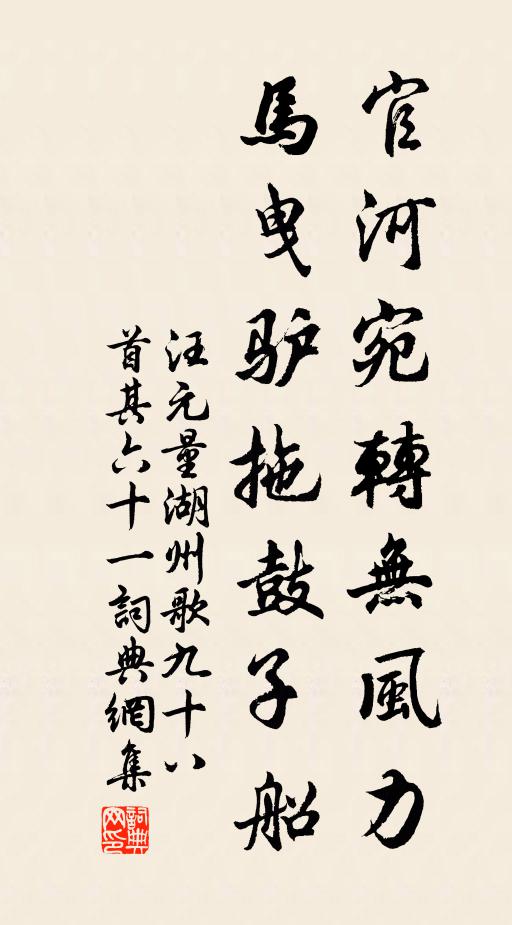 官河宛轉無風力
馬曳驴拖鼓子船
汪元量湖州歌九十八
首其六十一詞典網集
詞典
网印